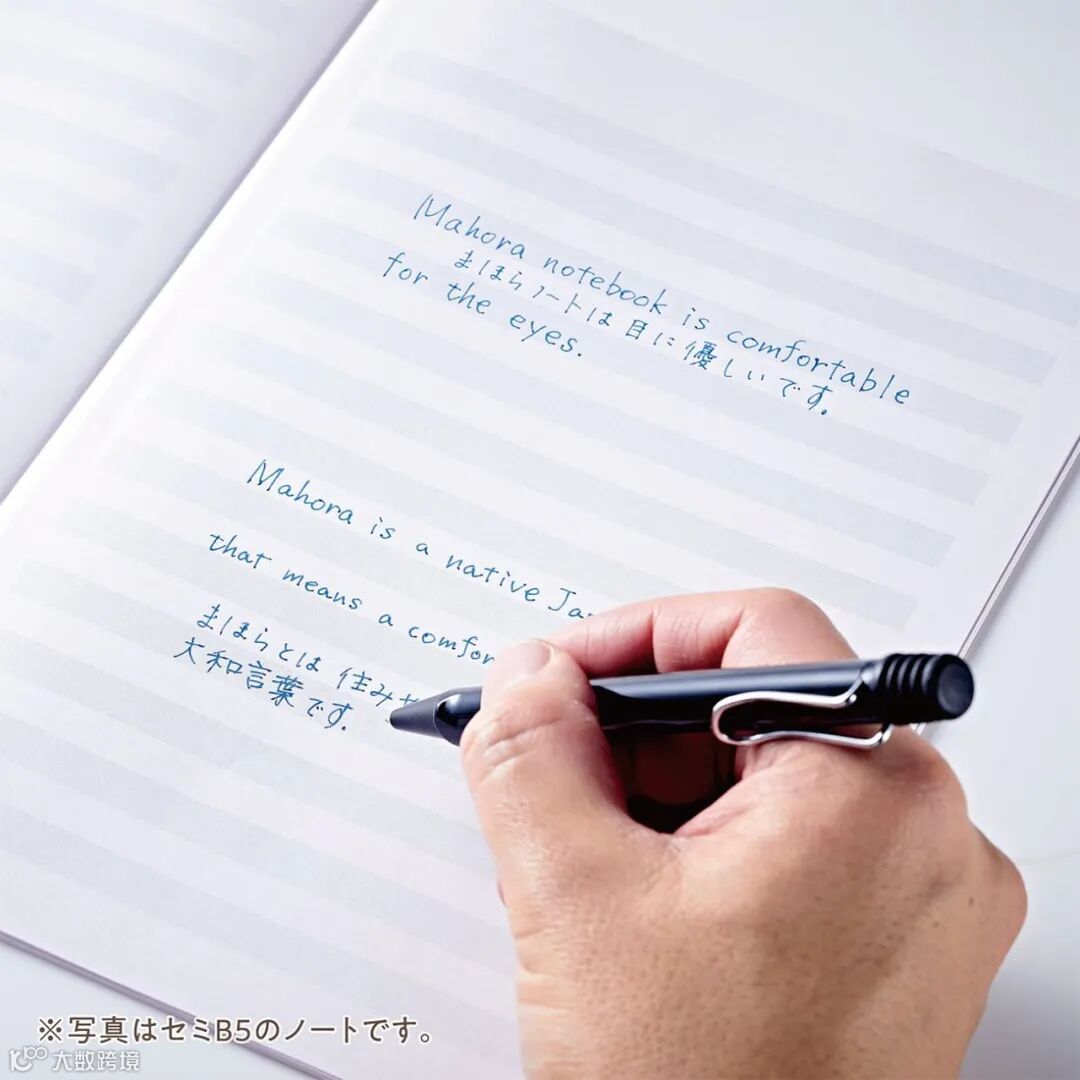 Mahora notebook is comfortable
まほらノートは目に優しいです。
for the eyes.
Mahora is a native
that means a
まほらとは 住み
大和言葉です。
※写真はセミB5のノートです。
大数跨境